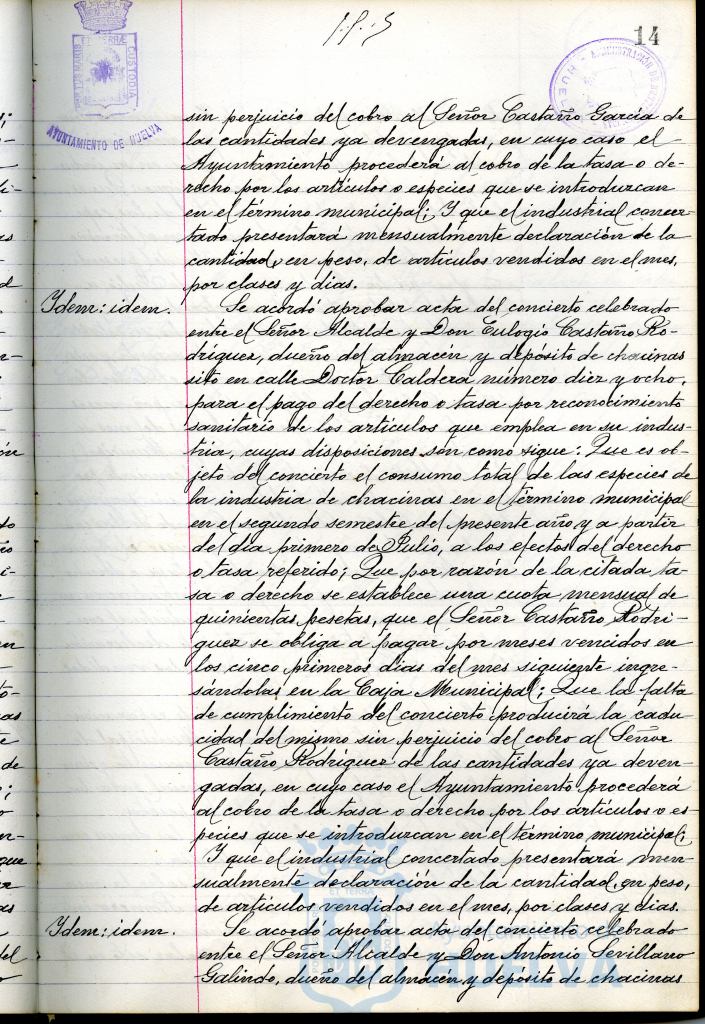 14
PORTUS MARIS ET TERRÆ CUSTODIA
AYUNTAMIENTO DE HUELVA
sin perjuicio del cobro al Señor Castaño García de
las cantidades ya devengadas, en cuyo caso el
Ayuntamiento procederá al cobro de la tasa o de-
recho por los artículos o especies que se introduzcan
en el término municipal; Y que el industrial concer-
tado presentará mensualmente declaración de la
cantidad, en peso, de artículos vendidos en el mes,
por clases y dias.
Idem: idem.
Se acordó aprobar acta del concierto celebrado
entre el Señor Alcalde y Don Eulogio Castaño Ro-
dríguez, dueño del almacén y depósito de chacinas
sito en calle Doctor Caldera número diez y ocho,
para el pago del derecho o tasa por reconocimiento
sanitario de los artículos que emplea en su indus-
tria, cuyas disposiciones son como sigue: Que es ob-
jeto del concierto el consumo total de las especies de
la industria de chacinas en el término municipal
en el segundo semestre del presente año y a partir
del día primero de Julio, a los efectos del derecho
o tasa referido; Que por razón de la citada ta-
sa o derecho se establece una cuota mensual de
quinientas pesetas, que el Señor Castaño Rodri-
guez se obliga a pagar por meses vencidos en
los cinco primeros dias del mes siguiente ingre-
sándolas en la Caja Municipal; Que la falta
de cumplimiento del concierto producirá la cadu
cidad del mismo sin perjuicio del cobro al Señor
Castaño Rodríguez de las cantidades ya deven-
gadas, en cuyo caso el Ayuntamiento procederá
al cobro de la tasa o derecho por los artículos o es
pecies que se introduzcan en el término municipal;
Y que el industrial concertado presentará men-
sualmente declaración de la cantidad, en peso,
de artículos vendidos en el mes, por clases y dias.
Idem: idem.
Se acordó aprobar acta del concierto celebrado
entre el Señor Alcalde y Don Antonio Sevillano
Galindo, dueño del almacen y depósito de chacinas
HUELVA